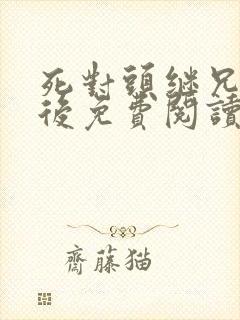 死對頭继兄
後免費閱讀
齋藤猫